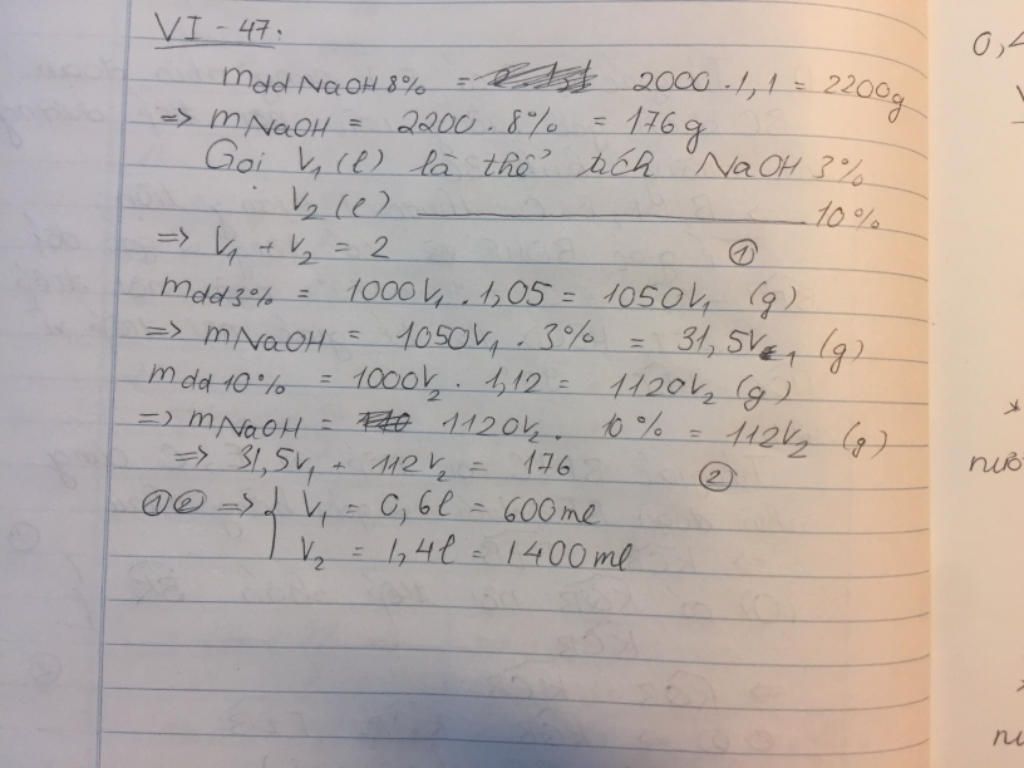 VI - 47.
mddNaOH8% = 2000 . 1,1 = 2200g
=> mNaOH = 2200 . 8% = 176g
Gọi V1 (l) là thể tích NaOH 3%
V2 (l) ———————— 10%
=> V1 + V2 = 2 ①
mdd3% = 1000V1 . 1,05 = 1050V1 (g)
=> mNaOH = 1050V1 . 3% = 31,5V1 (g)
mdd10% = 1000V2 . 1,12 = 1120V2 (g)
=> mNaOH = 1120V2 . 10% = 112V2 (g)
=> 31,5V1 + 112V2 = 176 ②
①② => { V1 = 0,6l = 600ml
V2 = 1,4l = 1400ml
0,4